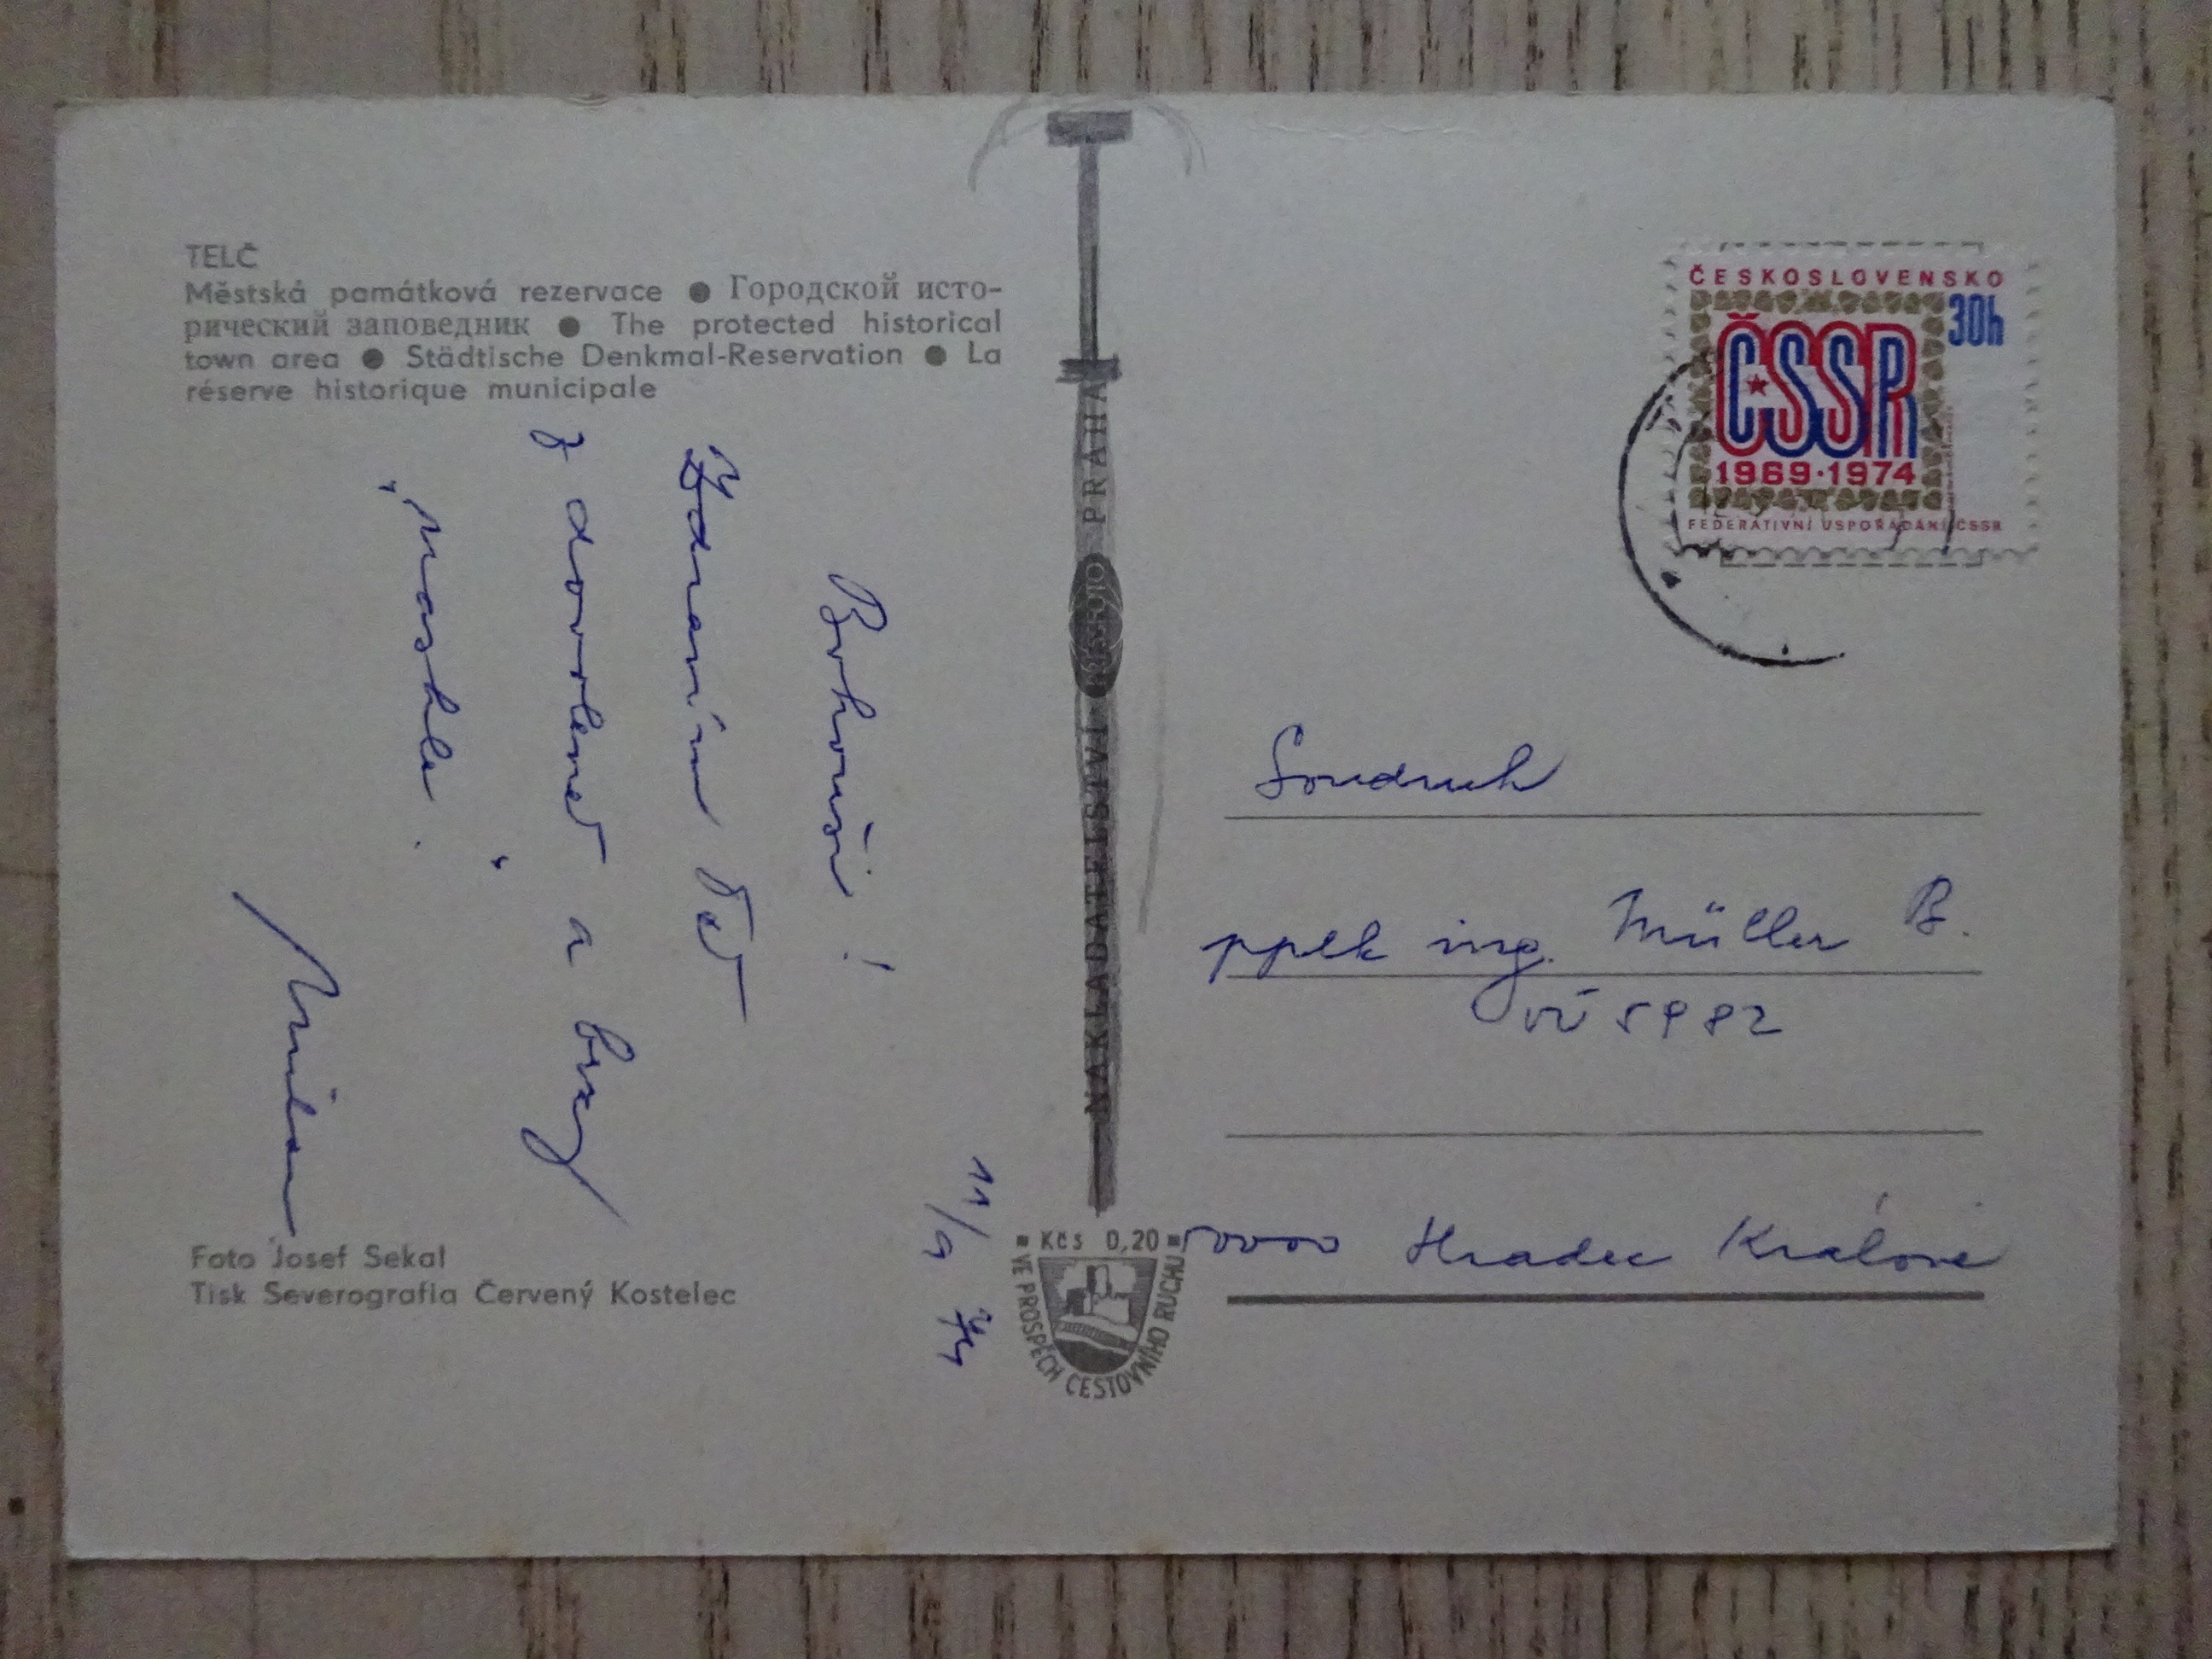 TELČ
Městská památková rezervace ● Городской исто-
рический заповедник ● The protected historical
town area ● Städtische Denkmal-Reservation ● La
réserve historique municipale
Bohouši!
Zdravím Tě
z dovolené a brzy
nashle.
Milan
11/9
Foto Josef Sekal
Tisk Severografia Červený Kostelec
NAKLADATELSTVÍ PRAHA
Kčs 0,20
VE PROSPĚCH CESTOVNÍHO RUCHU
ČESKOSLOVENSKO
30h
ČSSR
1969·1974
FEDERATIVNÍ USPOŘÁDÁNÍ ČSSR
Soudruh
pplk ing. Müller B.
VÚ 5982
50000 Hradec Králové